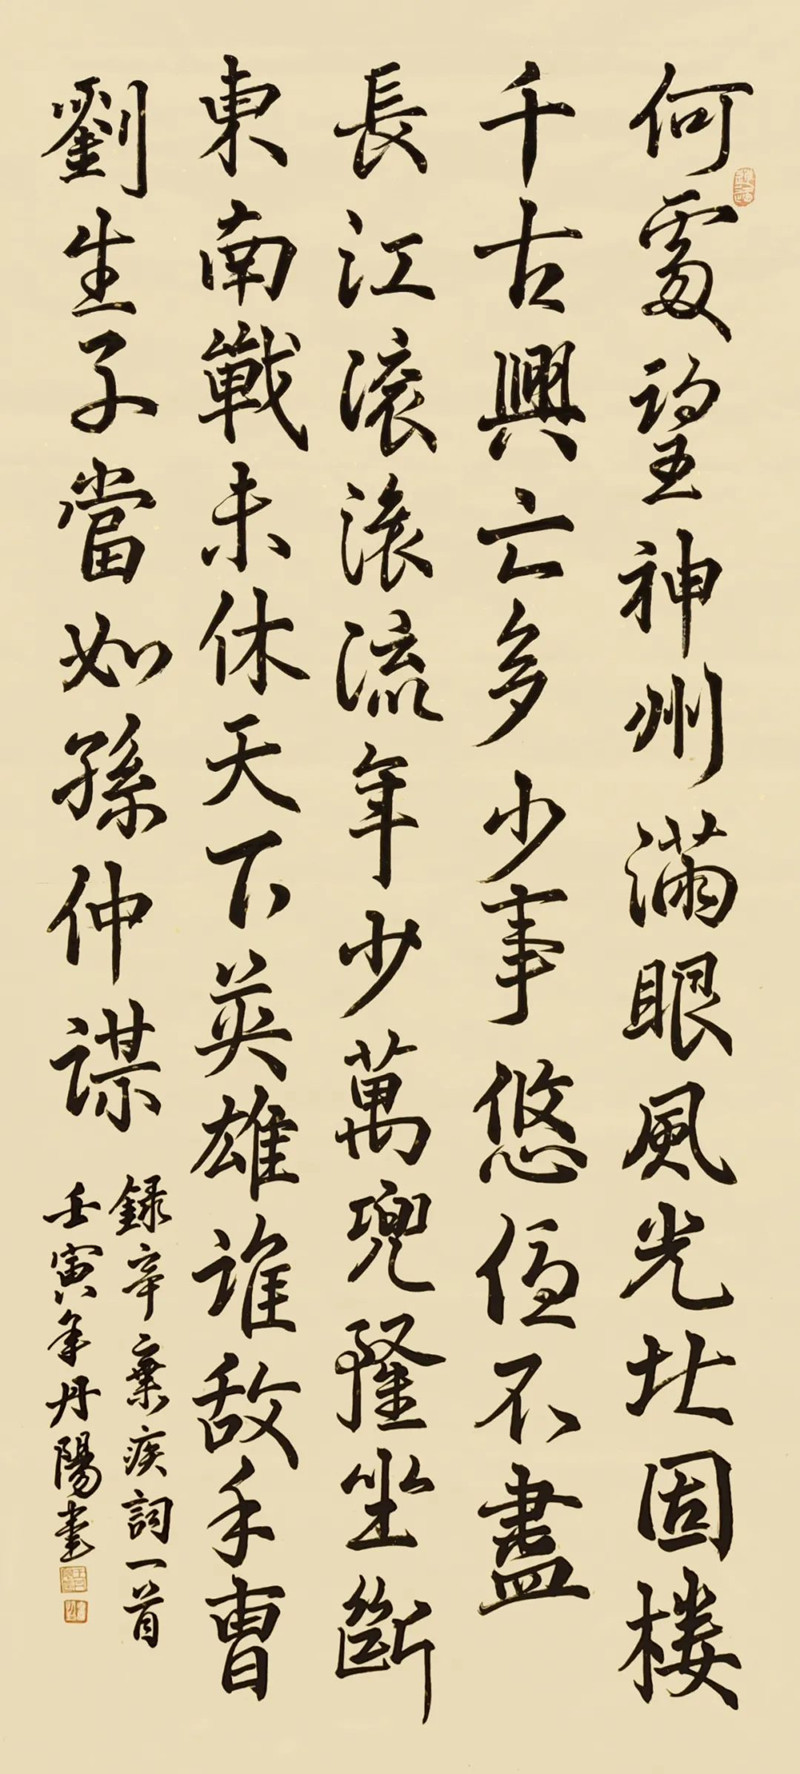 何處望神州滿眼風光北固楼
千古興亡多少事悠悠不盡
長江滚滚流年少萬兜鍪坐斷
東南戰未休天下英雄誰敌手曹
劉生子當如孫仲謀
録辛棄疾詞一首
壬寅年丹陽書